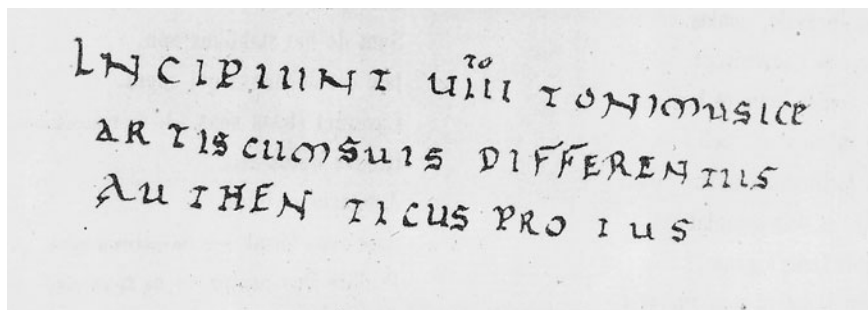 INCIPIUNT VIIII TO TONI MUSICE
ARTIS CUM SUIS DIFFERENTIIS
AUTHENTICUS PROTUS